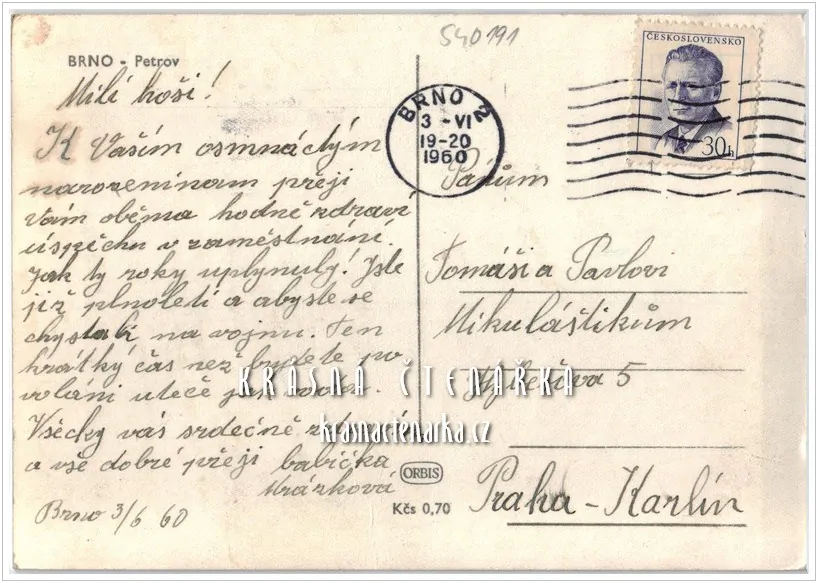 S40191
BRNO - Petrov
Milí hoši!
K Vaším osmnáctým
narozeninam přeji
Vám oběma hodně zdraví
úspěchu v zaměstnání.
Jak ty roky uplynuly! Jste
již plnoletí a abyste se
chystali na vojnu. Ten
krátký čas než budete po
voláni uteče jak voda.
Všecky vás srdečně zdraví
a vše dobré přeji babička
Mrázková
Brno 3/6 60
ORBIS
Kčs 0,70
BRNO 2
3 -VI
19-20
1960
ČESKOSLOVENSKO
30h
Pánům
Tomáši a Pavlovi
Mikuláštikům
5
Praha - Karlín
KRÁSNÁ ČTENÁŘKA
krasnactenarka.cz